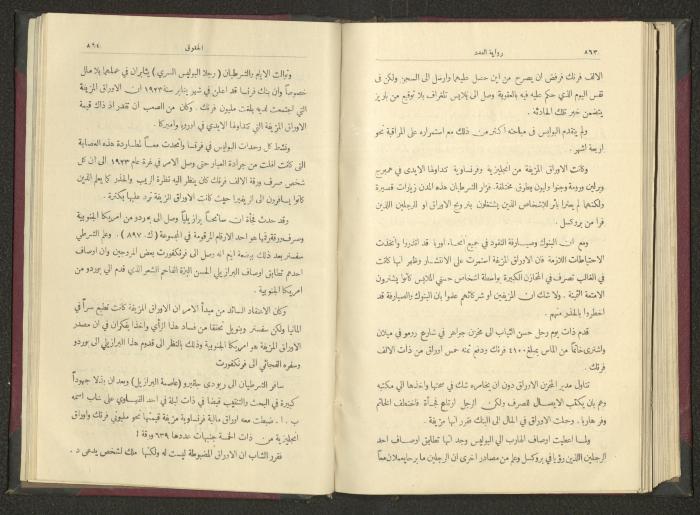 ٨٦٣ رواية العدد
الالف فرنك فرفض ان يصرح من اين حصل عليهما وارسل الى السجن ولكن فى
نفس اليوم الذي حكم عليه فيه بالعقوبة وصل الى بلايس تلغراف بلا توقيع من باريز
يتضمن خبر تلك الحادثه .
ولم يتقدم البوليس فى مباحثه أكثر من ذلك مع استمراره على المراقبة نحو
اربعة اشهر .
وكانت الاوراق المزيفة من انجليزية وفرنساوية تتداولها الايدى في همبرج
وبرلين ورومة وجنوا وليون بطرق مختلفة. فزار الشرطيان هذه المدن زيارات قصيرة
ولكنهما لم يعثرا بأثر للاشخاص الذين يشتغلون بترويج الاوراق او الرجلين اللذين
فرا من بروكسل .
ومع ان البنوك وصيارفة النقود في جميع أنحاء اوربا قد انذروا واتخذت
الاحتياطات اللازمة فان الاوراق المزيفة استمرت على الانتشار وظهر أنها كانت
في الغالب تصرف في المخازن الكبيرة بواسطة اشخاص حسني الملابس كانوا يشترون
الامتعة الثمينة . ولا شك ان المزيفين او شركائهم علموا بان البنوك والصيارفة قد
اخطروا بالحذر منهم .
قدم ذات يوم رجل حسن الثياب الى مخزن جواهر في شارع ررمو في ميلان
واشترى خاتماً من الماس بمبلغ ٤٤٠٠ فرنك ودفع ثمنه خمس اوراق من ذات الالف
فرنك .
تناول مدير المخزن الاوراق دون ان يخامره شك في صحتها واخذها الى مكتبه
وهم بان يكتب الايصال للصرف ولكن الرجل ارتاع فجأة فاختطف الخاتم
وفر هاربا . وحملت الاوراق في الحال الى البنك فقرر انها مزيفة .
ولما اعطيت اوصاف الهارب الى البوليس وجد انها تطابق اوصاف احد
الرجلين اللذين رؤيا في بروكسل وعلم من مصادر اخرى ان الرجلين ما برحا يعملان معاً
الحقوق ٨٦٤
وتوالت الايام والشرطيان ( رجلا البوليس السري ) يثابران في عملهما بلا ملل
خصوصاً وان بنك فرنسا قد اعلن في شهر يناير سنة ١٩٢٣ ان الاوراق المزيفة
التي اجتمعت لديه بلغت مليون فرنك . وكان من الصعب ان تقدر اذ ذاك قيمة
الاوراق المزيفة التي تتداولها الايدي في اوروبا واميركا .
ونشط كل وحدات البوليس في فرنسا واتحدت معاً لمطاردة هذه العصابة
التى كانت افلت من جرادة العيار حتى وصل الامر في غرة عام ١٩٢٣ الى ان كل
شخص صرف ورقة الالف فرنك كان ينظر اليه نظرة الريب والحذر كما يعلم الذين
كانوا يسافرون الى الريفيرا حيث كانت الاوراق المزيفة تورد عليها بكثرة .
وقد حدث فجأة ان سائحاً برازيلياً وصل الى بوردو من امريكا الجنوبية
وصرف ورقة رقمها هو احد الارقام المرقومة في المجموعة ( ك . ٨٩٧ ) . وعلم الشرطي
سفستر بعد ذلك ببضعة ايام انه رسل الى فرنكفورت بعض المروجين وان اوصاف
احدهم تطابق اوصاف البرازيلي الحسن البزة الفاحم الشعر الذي قدم الى بوردو من
امريكا الجنوبية .
وكان الاعتقاد السائد من مبدأ الامر ان الاوراق المزيفة كانت تطبع سراً في
المانيا ولكن سفستر وبنويل تحققا من فساد هذا الرأي واخذا يفكران في ان مصدر
الاوراق المزيفة هو امريكا الجنوبية وذلك بالنظر الى قدوم هذا البرازيلي الى بوردو
وسفره الفجائي الى فرنكفورت
سافر الشرطيان الى ريودى جانيرو (عاصمة البرازيل) وبعد ان بذلا جهوداً
كبيرة في البحث والتنقيب قبضا في ذات ليلة في احد القهاوي على شاب اسمه
ب . ا . ضبطت معه اوراق مالية فرنساوية مزيفة قيمتها نحو مليوني فرنك واوراق
انجليزية من ذات الخمسة جنيهات عددها ٦٣٩ ورقة !
فقرر الشاب ان الاوراق المضبوطة ليست له ولكنها ملك لشخص يدعى د .